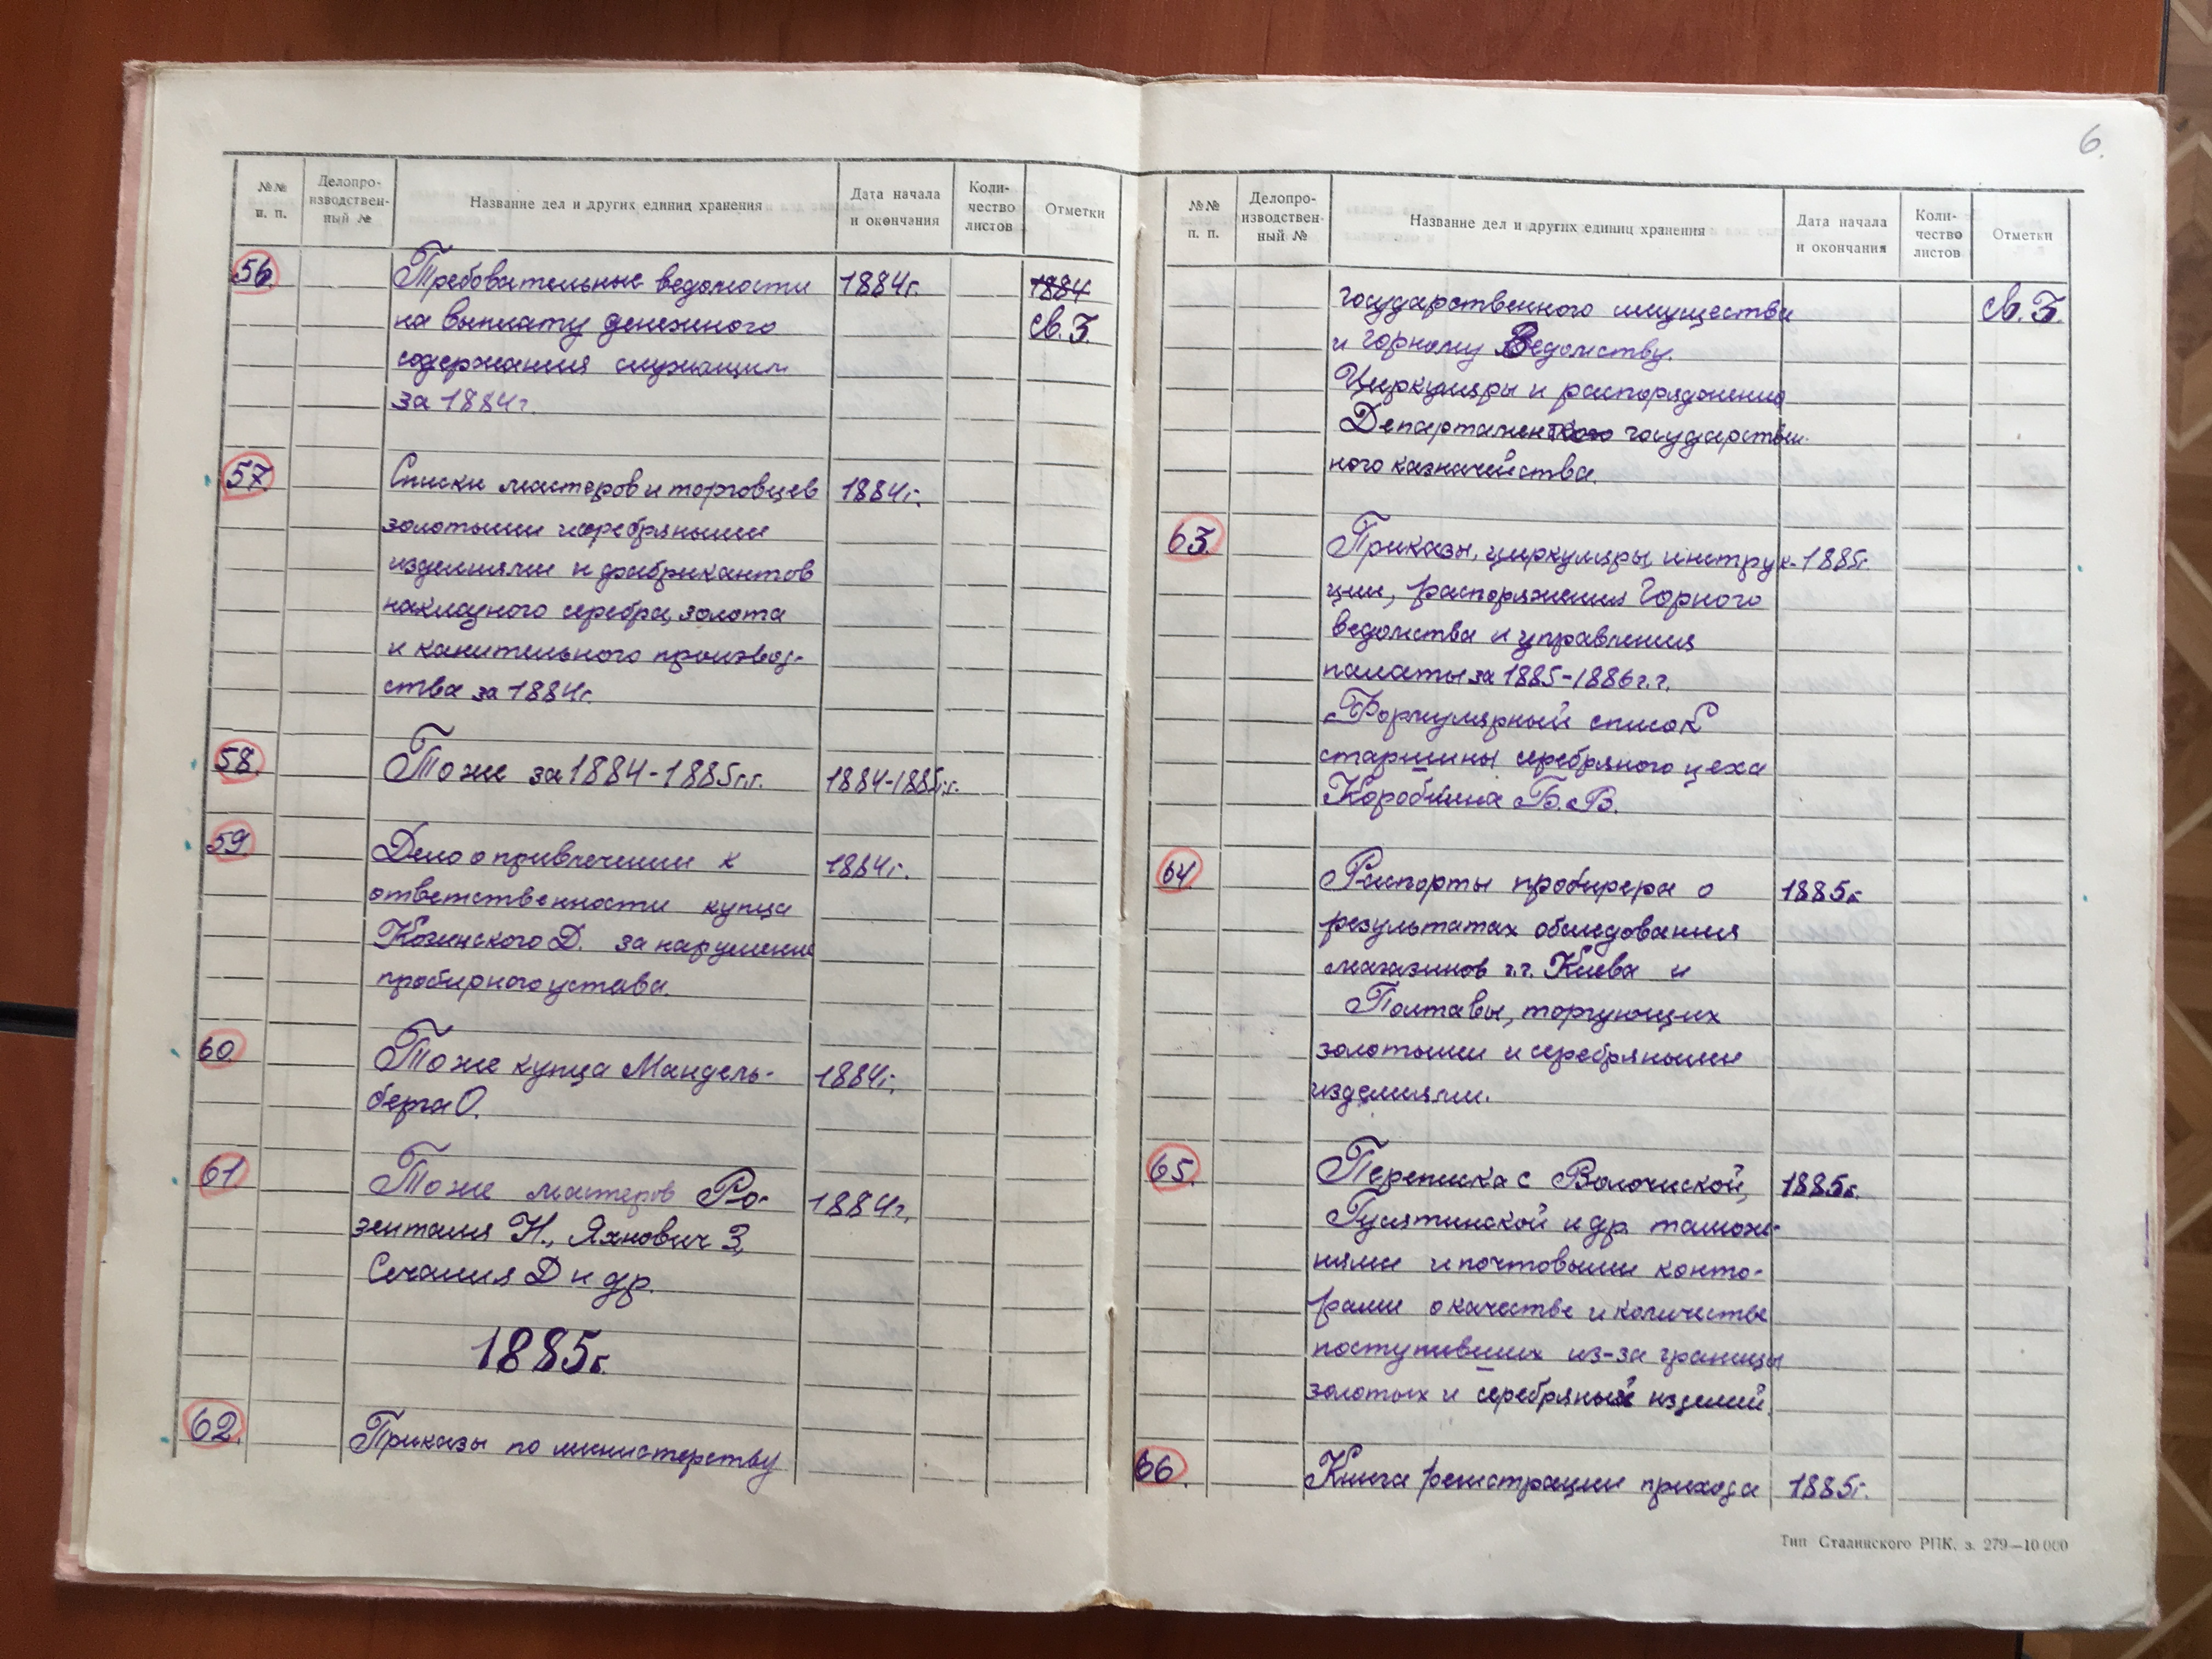 №№ п. п.
Делопро-
изводствен-
ный №
Название дел и других единиц хранения
Дата начала
и окончания
Коли-
чество
листов
Отметки
56. Требовательные ведомости 1884г. 1884
на выплату денежного св. 3.
содержания служащим
за 1884г.
57. Списки мастеров и торговцев 1884г.
золотыми и серебряными
изделиями и фабрикантов
накладного серебра, золота
и канительного производ-
ства за 1884г.
58. То же за 1884-1885г.г. 1884-1885г.г.
59 Дело о привлечении к 1884г.
ответственности купца
Козинского Д. за нарушение
пробирного устава.
60. То же купца Мандель- 1884г.
берга О.
61 То же мастеров Ро- 1884г.
зенталя Н., Яхнович З,
Сечания Д и др.
1885г.
62. Приказы по министерству
6.
№№
п. п.
Делопро-
изводствен-
ный №
Название дел и других единиц хранения
Дата начала
и окончания
Коли-
чество
листов
Отметки
государственного имущества св. 3.
и горному Ведомству.
Циркуляры и распоряжения
Департамента государствен-
ного казначейства.
63. Приказы, циркуляры, инструк- 1885г.
ции, распоряжения Горного
ведомства и управления
палаты за 1885-1886г.г.
Формулярный список
старшины серебряного цеха
Коробкина Б. В.
64. Рапорты пробирера о 1885г.
результатах обследования
магазинов г.г. Киева и
Полтавы, торгующих
золотыми и серебряными
изделиями.
65. Переписка с Волочиской, 1885г.
Гусятинской и др. таможе-
нями и почтовыми конто-
рами о качестве и количестве
поступивших из-за границы
золотых и серебряных изделий.
66. Книга регистрации прихода 1885г.
Тип Сталинского РПК. з. 279—10 000